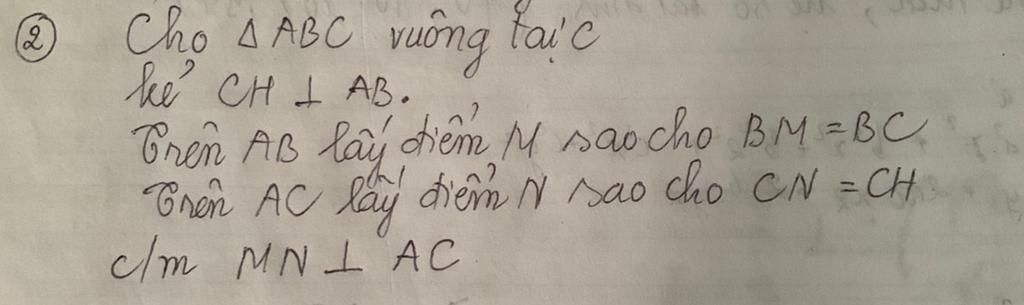 ② Cho Δ ABC vuông tại C
kẻ CH ⊥ AB.
Trên AB lấy điểm M sao cho BM = BC
Trên AC lấy điểm N sao cho CN = CH
c/m MN ⊥ AC